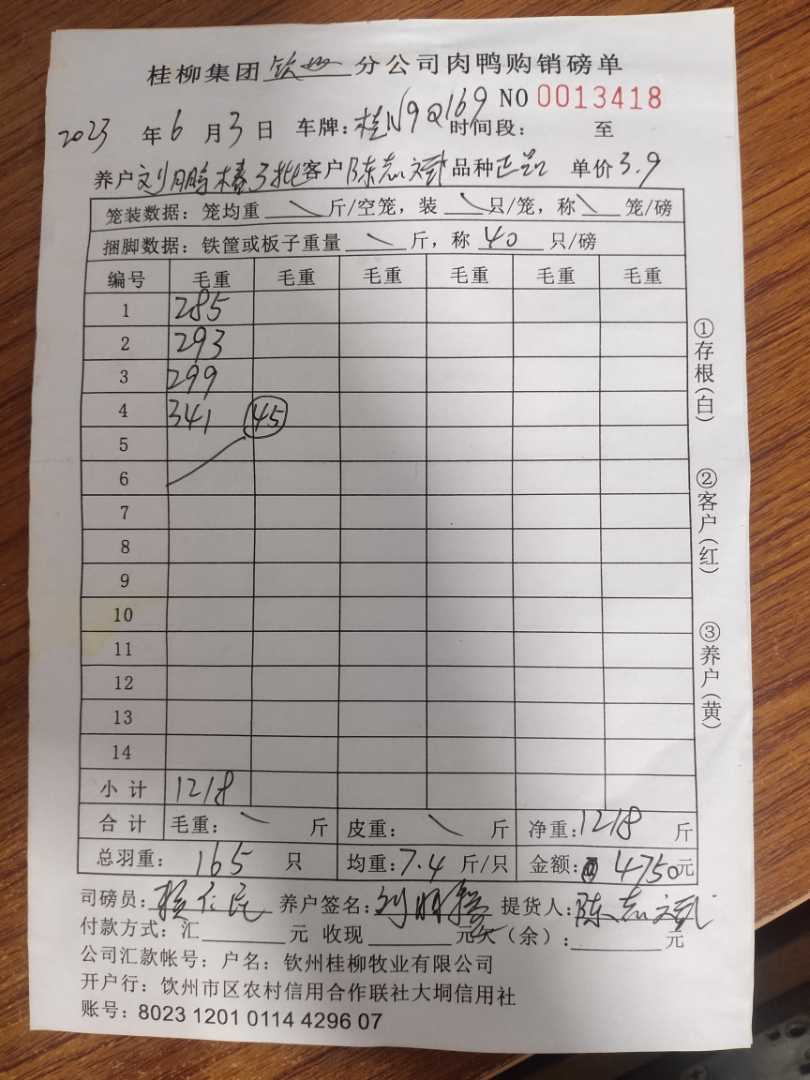 桂柳集团钦州分公司肉鸭购销磅单
NO 0013418
2023年6月3日 车牌:桂N9Q169 时间段: 至
养户刘鹏榛3批客户陈志斌品种正品 单价3.9
笼装数据:笼均重\斤/空笼,装\只/笼,称\笼/磅
捆脚数据:铁筐或板子重量\斤,称40只/磅
编号 毛重 毛重 毛重 毛重 毛重 毛重
1 285
2 293
3 299
4 341 45
5
6
7
8
9
10
11
12
13
14
小计 1218
合计 毛重:\斤 皮重:\斤 净重:1218斤
总羽重:165只 均重:7.4斤/只 金额:4750元
司磅员: 养户签名:刘 提货人:陈志斌
付款方式:汇 元 收现 元欠(余): 元
公司汇款帐号:户名:钦州桂柳牧业有限公司
开户行:钦州市区农村信用合作联社大垌信用社
账号:8023 1201 0114 4296 07
①存根(白)
②客户(红)
③养户(黄)